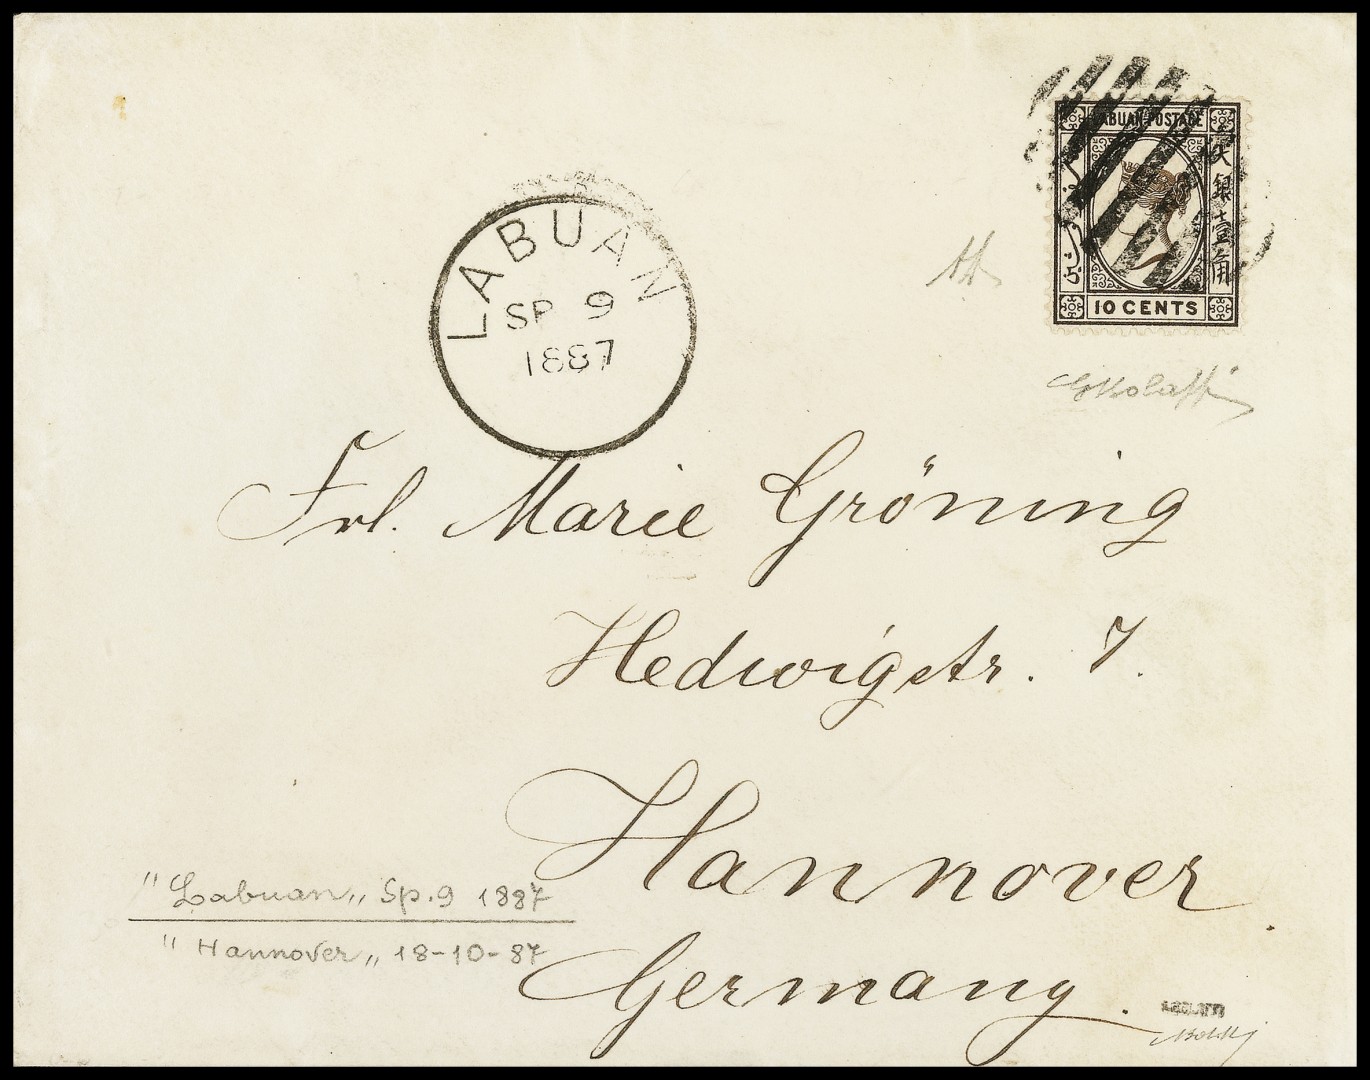 LABUAN POSTAGE
大銀壹角
10 CENTS
LABUAN
SP 9
1887
Frl. Marie Gröning
Hedwigstr. 7.
Hannover
Germany.
"Labuan„ Sp. 9 1887
"Hannover„ 18-10-87